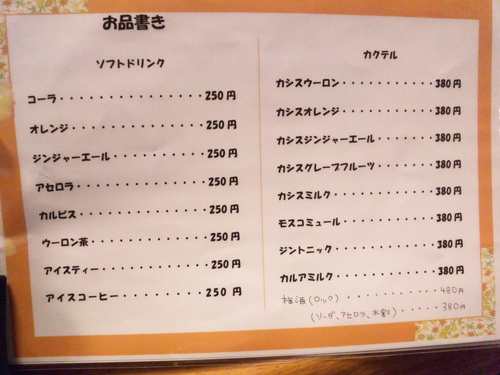 お品書き
ソフトドリンク
コーラ・・・・・・・・・・・・・・・250円
オレンジ・・・・・・・・・・・・・・250円
ジンジャーエール・・・・・・・・・・250円
アセロラ・・・・・・・・・・・・・・250円
カルピス・・・・・・・・・・・・・・250円
ウーロン茶・・・・・・・・・・・・・250円
アイスティー・・・・・・・・・・・・250円
アイスコーヒー・・・・・・・・・・・250円
カクテル
カシスウーロン・・・・・・・・・・・380円
カシスオレンジ・・・・・・・・・・・380円
カシスジンジャーエール・・・・・・・380円
カシスグレープフルーツ・・・・・・・380円
カシスミルク・・・・・・・・・・・・380円
モスコミュール・・・・・・・・・・・380円
ジントニック・・・・・・・・・・・・380円
カルアミルク・・・・・・・・・・・・380円
梅酒(ロック)・・・・・・・・・・・480円
(ソーダ、アセロラ、水割り)・・・・・380円